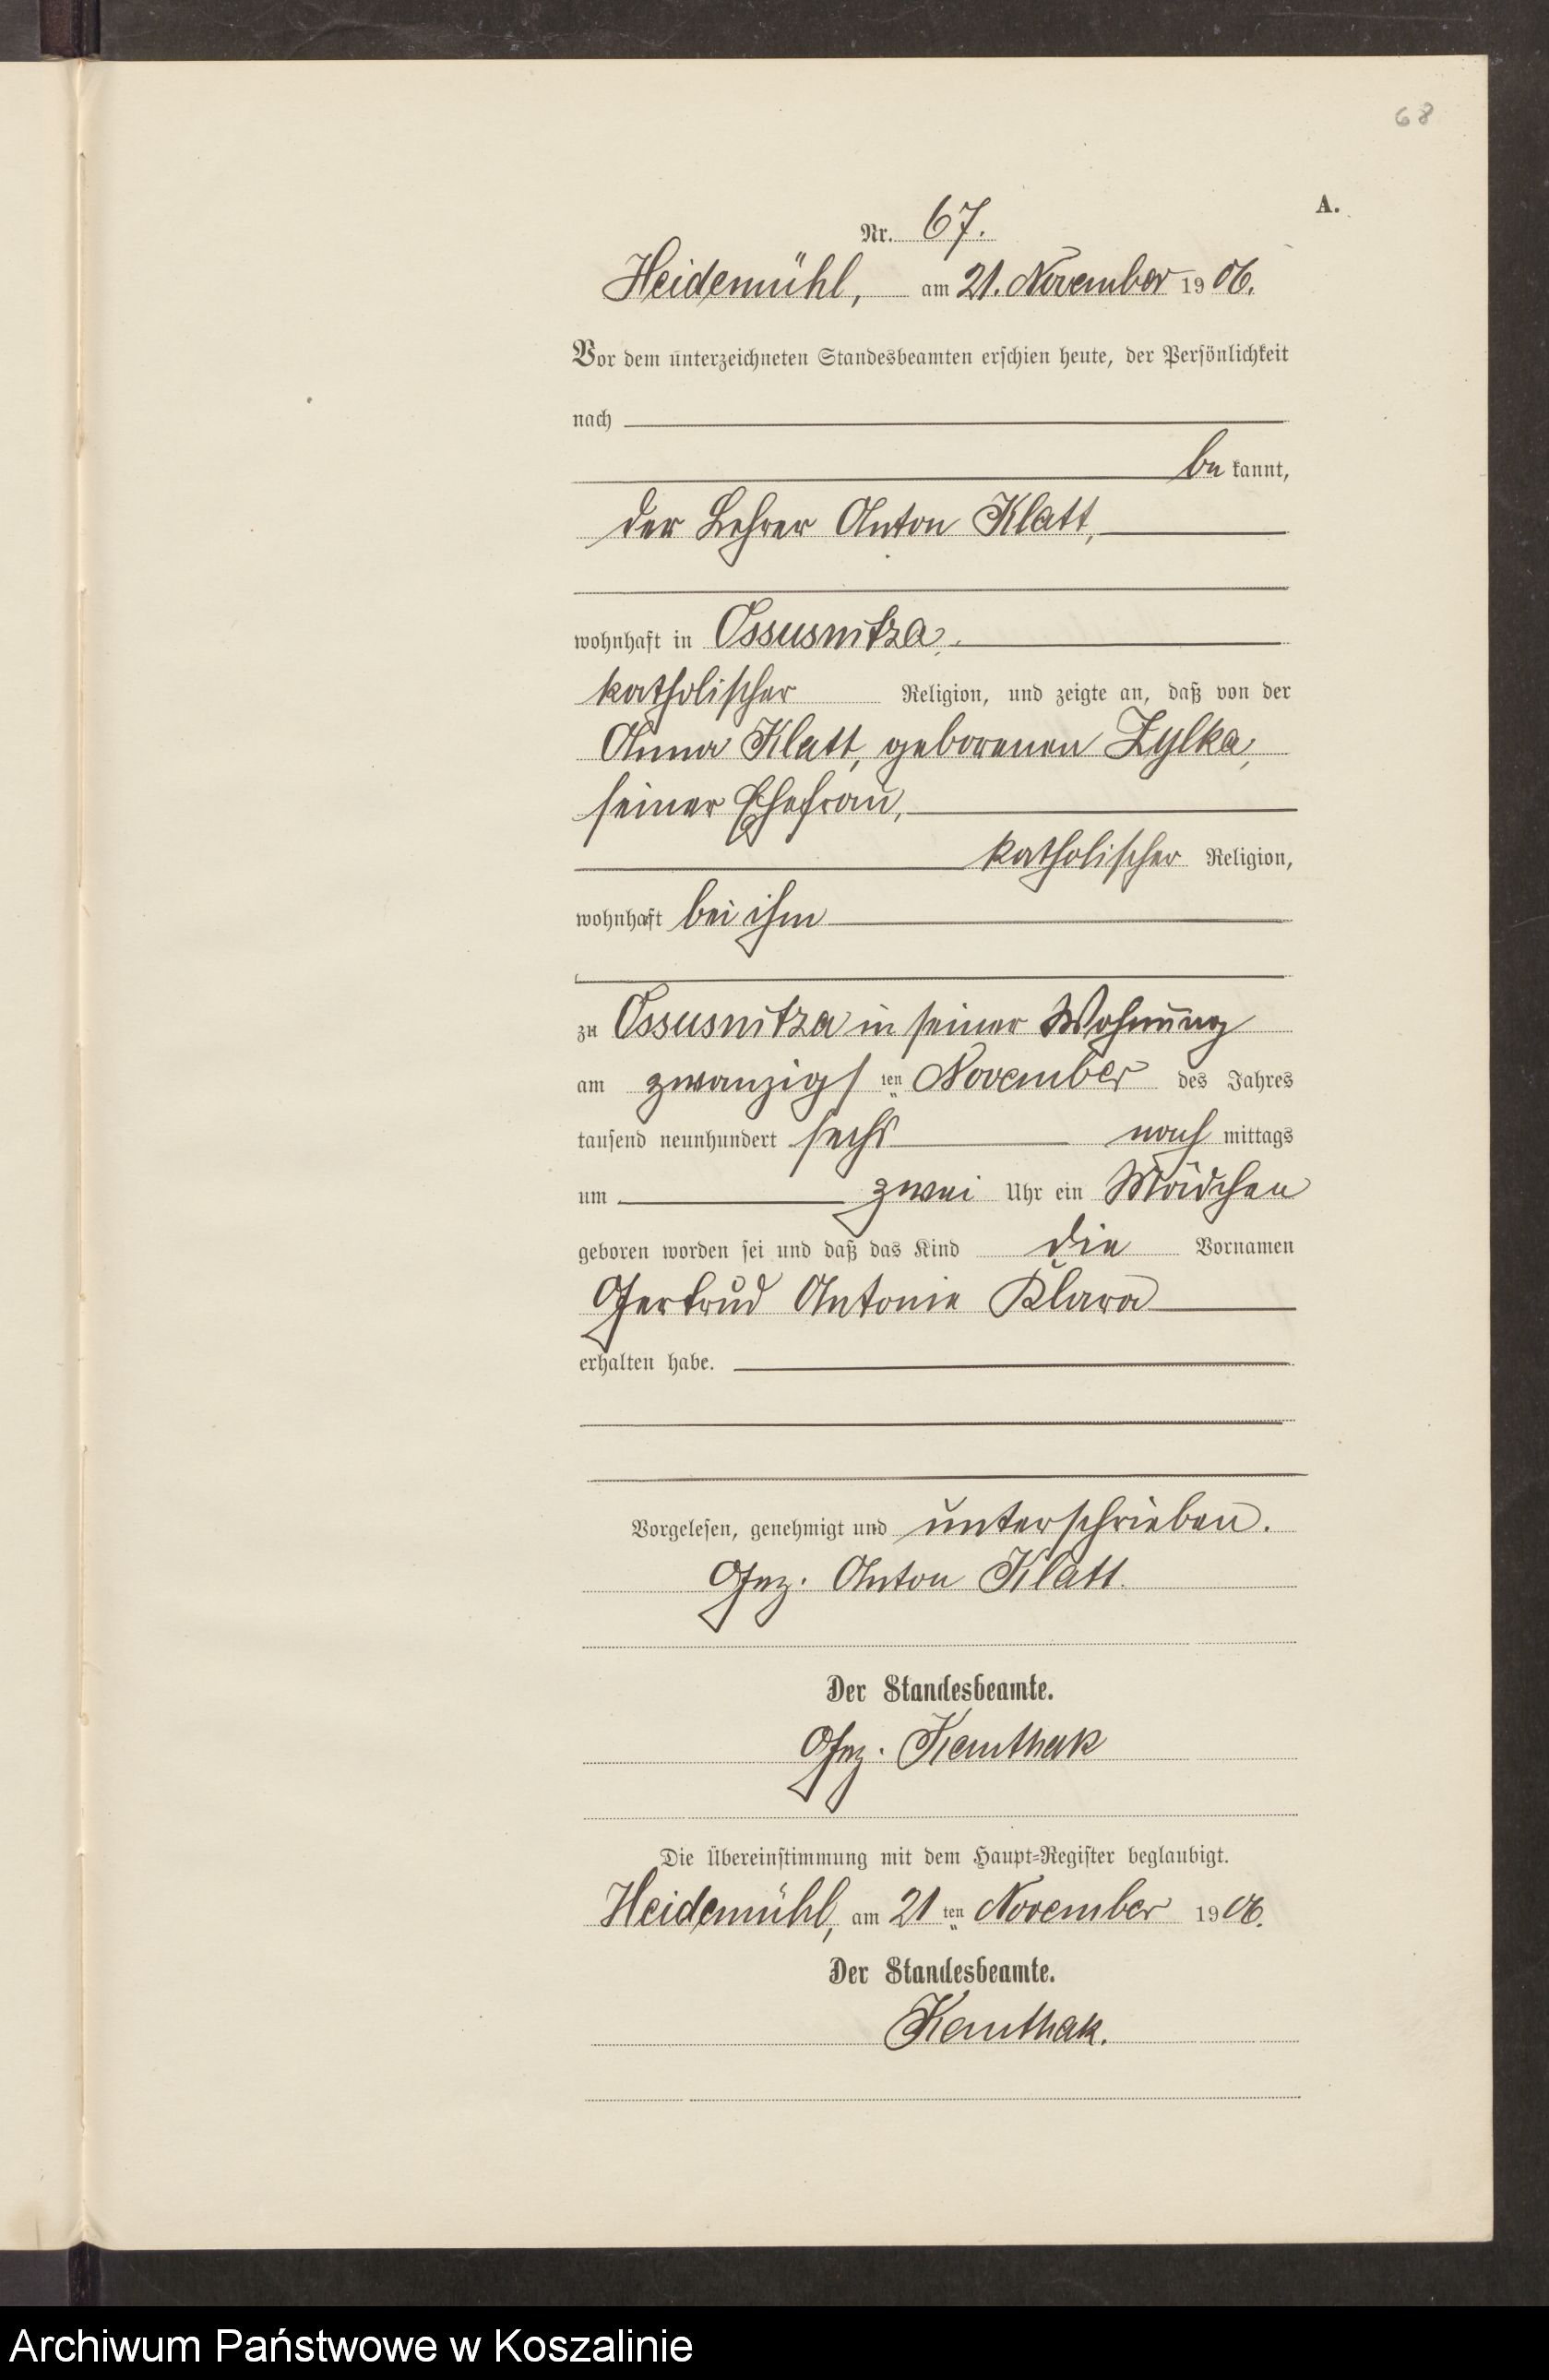 68
A.
Nr. 67.
Heidemühl, am 21. November 1906.
Vor dem unterzeichneten Standesbeamten erschien heute, der Persönlichkeit
nach
bekannt,
der Lehrer Anton Klatt,
wohnhaft in Ossusnitza,
katholischer Religion, und zeigte an, daß von der
Anna Klatt, geborenen Zylka,
seiner Ehefrau,
katholischer Religion,
wohnhaft bei ihm
zu Ossusnitza in seiner Wohnung
am zwanzigsten November des Jahres
tausend neunhundert sechs nachmittags
um zwei Uhr ein Mädchen
geboren worden sei und daß das Kind die Vornamen
Gertrud Antonie Klara
erhalten habe.
Vorgelesen, genehmigt und unterschrieben.
Gez. Anton Klatt.
Der Standesbeamte.
Gez. Kemthak
Die Übereinstimmung mit dem Haupt-Register beglaubigt.
Heidemühl, am 21ten November 1906.
Der Standesbeamte.
Kemthak.
Archiwum Państwowe w Koszalinie